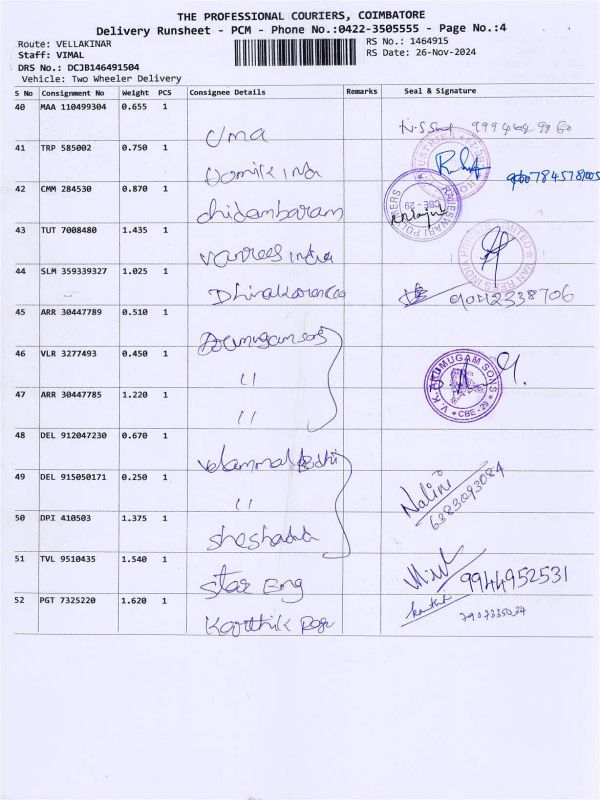 THE PROFESSIONAL COURIERS, COIMBATORE
Delivery Runsheet - PCM - Phone No.:0422-3505555 - Page No.:4
Route: VELLAKINAR RS No.: 1464915
Staff: VIMAL RS Date: 26-Nov-2024
DRS No.: DCJB146491504
Vehicle: Two Wheeler Delivery
S No Consignment No Weight PCS Consignee Details Remarks Seal & Signature
40 MAA 110499304 0.655 1
Uma
41 TRP 585002 0.750 1
India
42 CMM 284530 0.870 1
chidambaram
43 TUT 7008480 1.435 1
India
44 SLM 359339327 1.025 1
9042338706
45 ARR 30447789 0.510 1
46 VLR 3277493 0.450 1
11
V.K. ARUMUGAM SONS
* CBE-29 *
47 ARR 30447785 1.220 1
11
48 DEL 912047230 0.670 1
49 DEL 915050171 0.250 1
11
Nalini
6383093084
50 DPI 410503 1.375 1
51 TVL 9510435 1.540 1
Star Eng 9944952531
52 PGT 7325220 1.620 1
Karthik